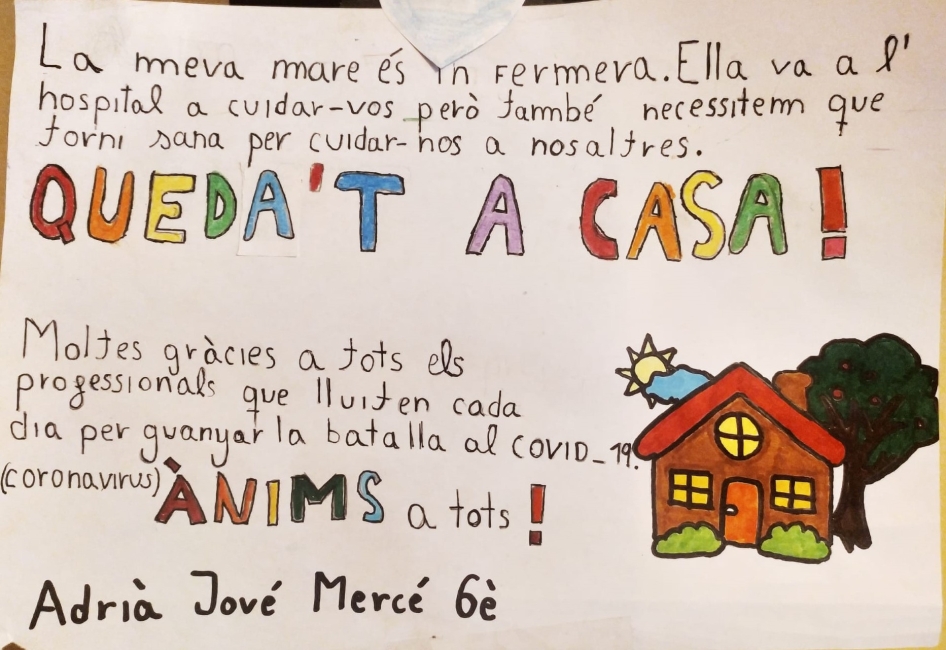 La meva mare és in Fermera. Ella va a l'
hospital a cuidar-vos però també necessitem que
torni sana per cuidar-nos a nosaltres.
QUEDA'T A CASA!
Moltes gràcies a tots els
professionals que lluiten cada
dia per guanyar la batalla al COVID_19.
(coronavirus) ÀNIMS a tots!
Adrià Jové Mercé 6è